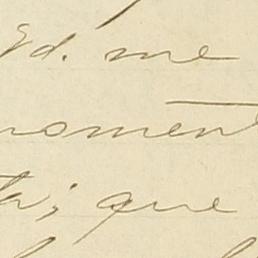 Vd. me
momen
ta; que